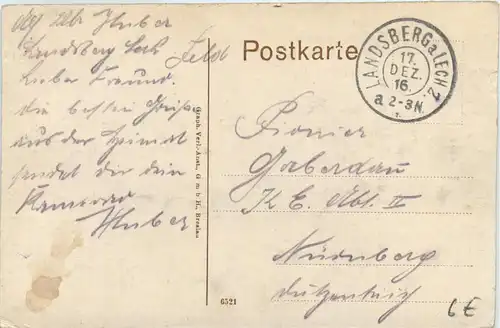 Huber
Landsberg Lech
Lieber Freund.
die besten Grüße
aus der Heimat
sendet dir dein
Kamerad
Huber
Feldp
Postkarte
LANDSBERG a. LECH 2.
17.
DEZ.
16.
a 2-3 N.
Graph. Verl.-Anst., G m b H., Breslau
6521
Pionier
K E. Abt. II
Nürnberg
6 €